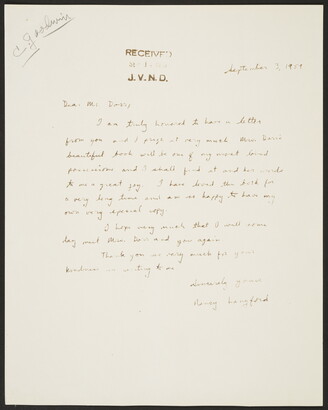 C. Goodwin
RECEIVED
J. V. N. D.
September 7, 1959
Dear Mr. Doss,
I am truly honored to have a letter
from you and I prize it very much. Miss Doss'
beautiful book will be one of my most loved
possessions and I shall find it and her words
to me a great joy. I have loved the book for
a very long time and am so happy to have my
own very special copy.
I hope very much that I will some
day meet Miss Doss and you again.
Thank you so very much for your
kindness in writing to me.
Sincerely yours
Nancy Langford